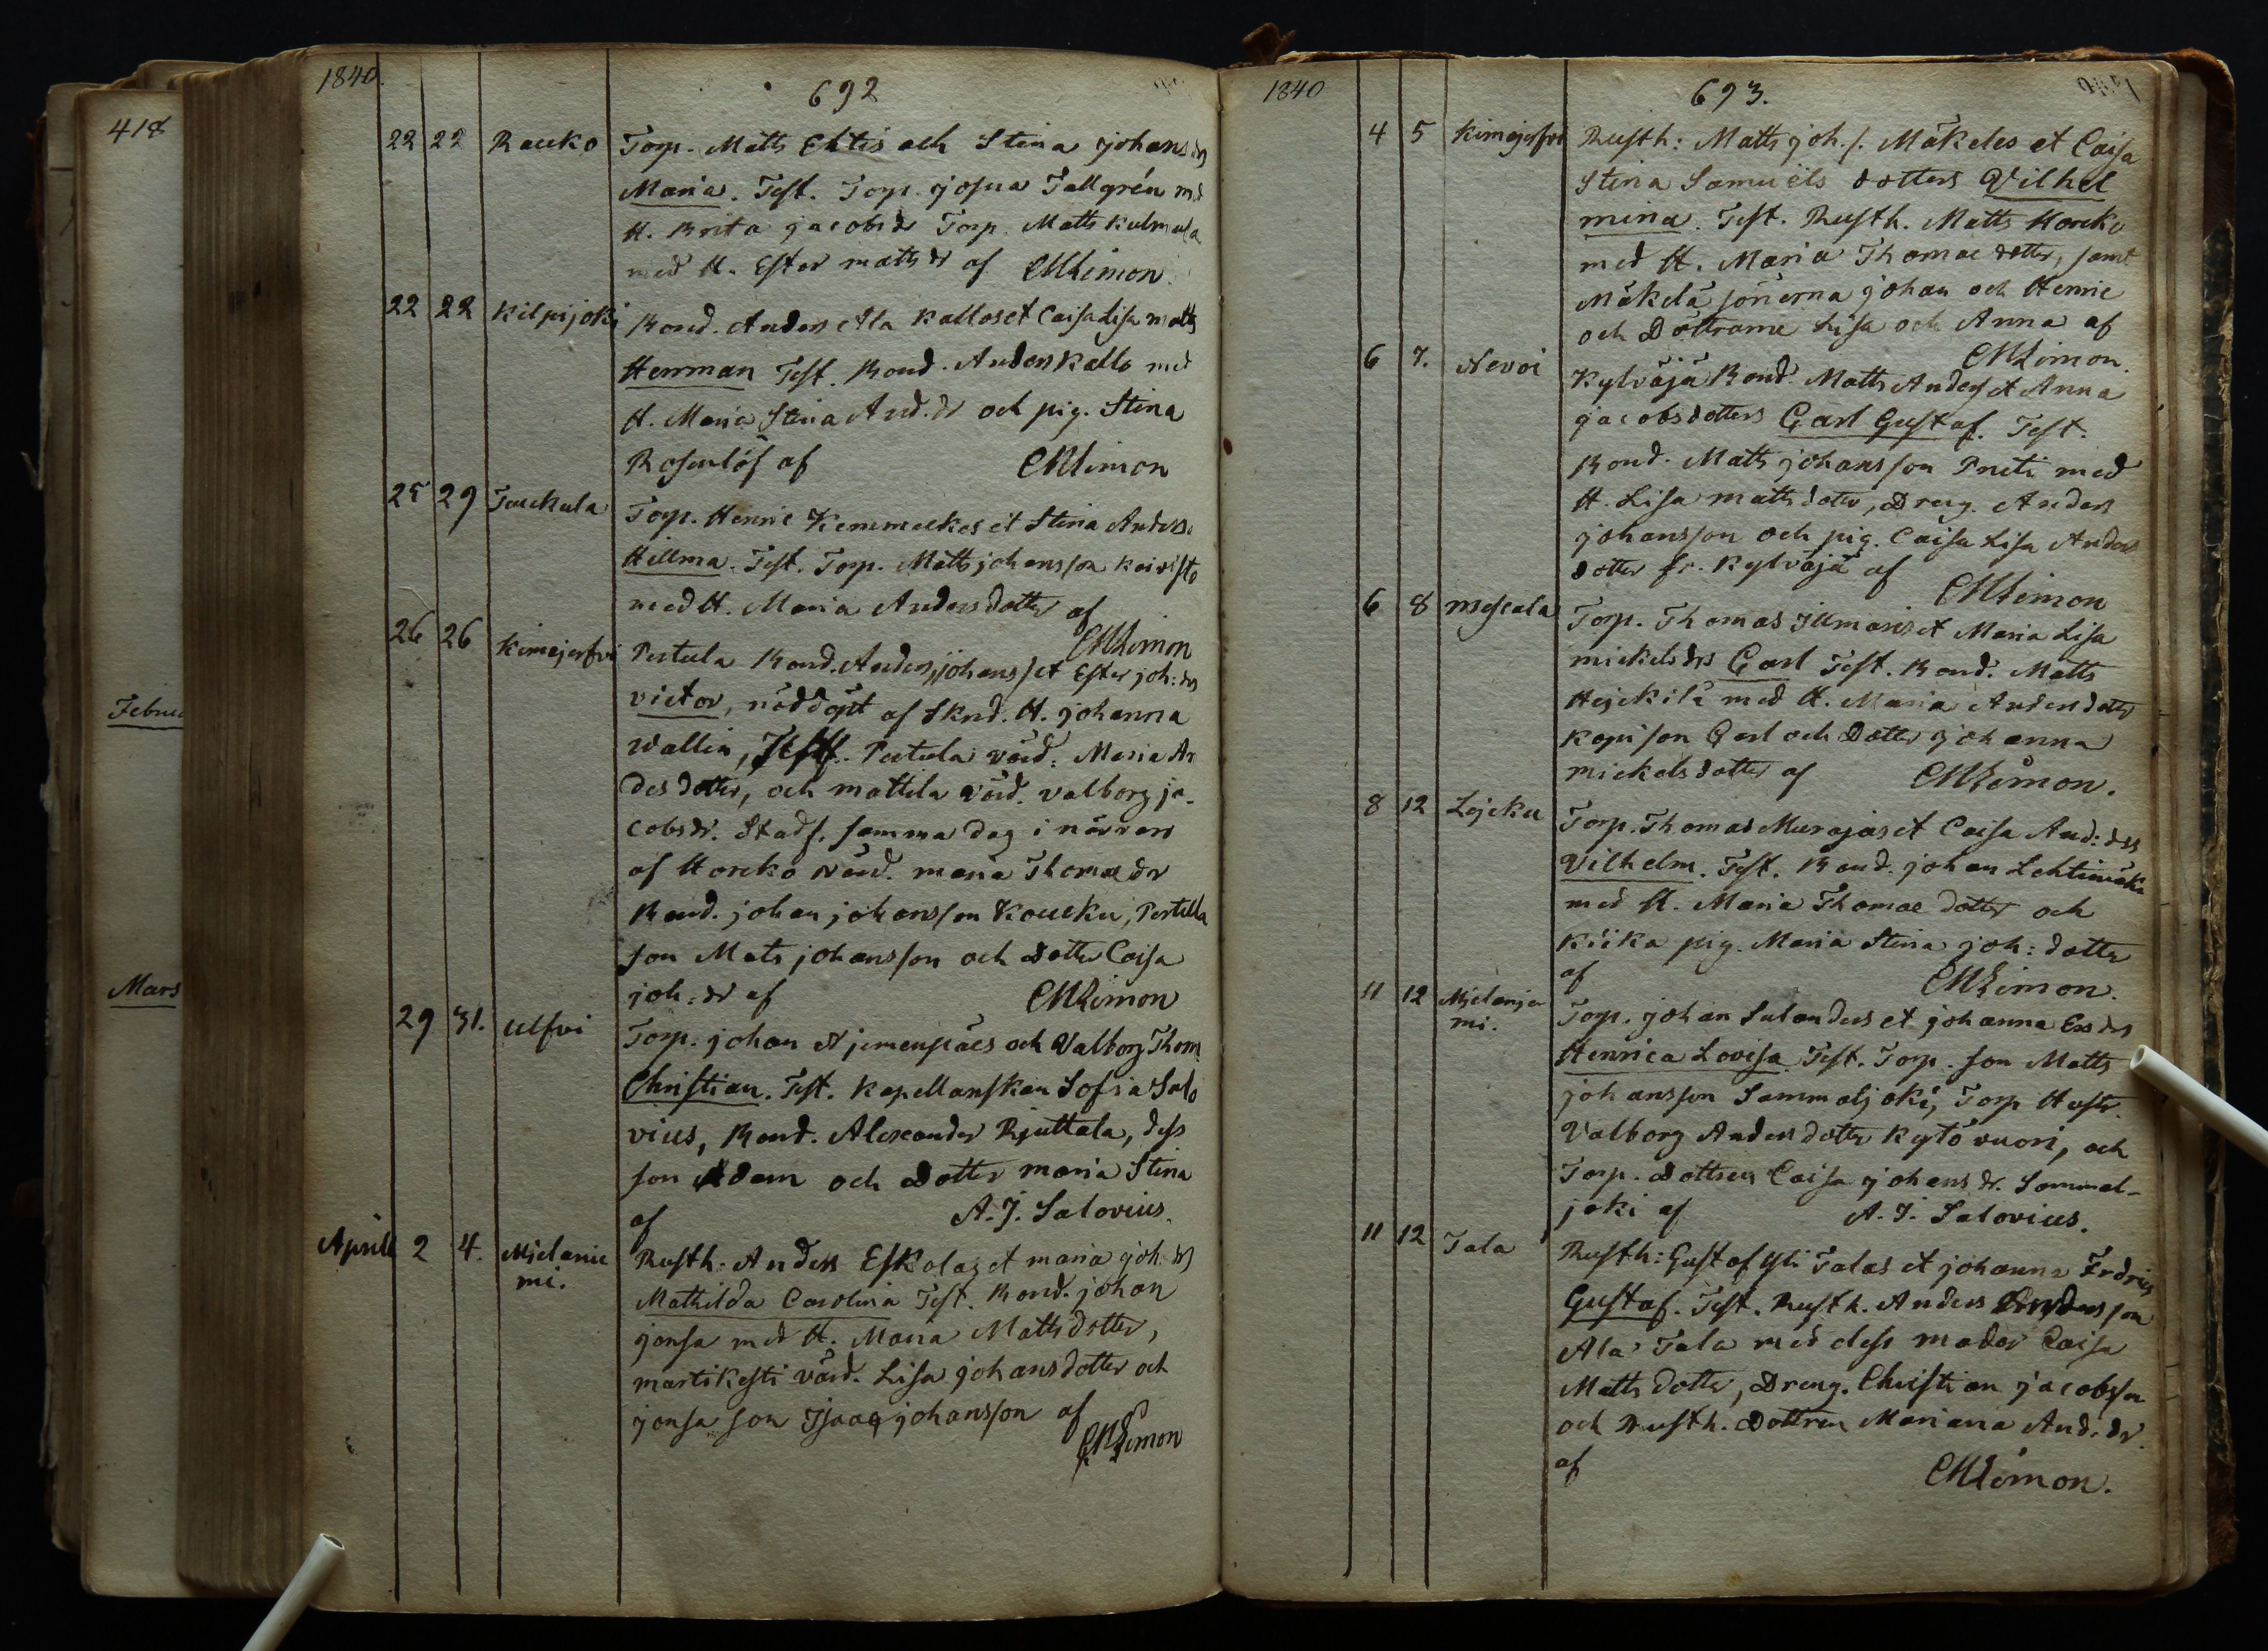 418
Februa
Mars
1840.
692
22 22 Rauko Torp. Matts Ehtis och Stina johansdrs
Maria. Test. Torp. josua Tallgrén med
H. Brita jacobsdr Torp. Matts kulmala
med H. Ester mattsdr af CMLimon.
22 22 Kilpijoki Bond. Anders Ala kallos et Caisa Lisa matts
Herrman Test. Bond. Anders kallo med
H. Maria Stina And.dr och pig. Stina
Rosenlöf af CMLimon
25 29 Jauckula Torp. Henric Kemmeckes et Stina Anders.
Hillma. Test. Torp. Matts johansson koivisto
med H. Maria Andersdotter af
CMLimon
26 26 kimejerfvi Pertula Bond. Anders johans s et Ester joh:drs
victor, nöddöpt af Sknd. H. johanna
Wallin, Test. Pertula värd: Maria An
dersdotter, och mattila värd. valborg ja-
cobsdr. Stadf. samma dag i närvaro
af Horcko värd. maria Thomaedr
Bond. johan johansson Koucku, Pertula
son Mats johansson och Dotter Caisa
joh:dr af CMLimon
29 31. Ulfvi Torp. johan Njemenpääs och Valborg Thom
Christian. Test. kapellanskan Sofia Salo
vius, Bond. Alexander Rjuttala, dess
son Adam och Dotter maria Stina
af A.J. Salovius.
Aprill 2 4. Mjelanie
mi. Rusth: Anders Eskolas et maria joh.drs
Mathilda Carolina Test. Bond. johan
jonsa med H. Maria Mattsdotter,
martikesti värd. Lisa johansdotter och
jonsa son Isaaq johansson af
CMLimon
1840
693.
4 5 kimejerfvi Rusth: Matts joh.s. Mäkeles et Caisa
Stina Samuels dotters Vilhel
mina. Test. Rusth. Matts Horcko
med H. Maria Thomae dotter, samt
Mäkelä sönerna johan och Henric
och Döttrarne Lisa och Anna af
CMLimon.
6 7. Nevoi Kylväjä Bond. Matts Anders et Anna
jacobsdotters Carl Gustaf. Test.
Bond. Matts johansson Preti med
H. Lisa mattsdoter, Dreng. Anders
johansson och pig. Caisa Lisa Anders
dotter fr. Kylväjä af
CMLimon
6 8 mescala Torp. Thomas Illmaris et Maria Lisa
mickelsdrs Carl Test. Bond. Matts
Hejckilä med H. Maria Andersdotter
kopi son Carl och Dotter johanna
mickelsdotter af CMLimon.
8 12 Lejcku Torp. Thomas Murajas et Caisa And:drs
Vilhelm. Test. Bond. johan Lehtimäki
med H. Maria Thomae dotter och
kiika pig. Maria Stina joh: dotter
af CMLimon.
11 12 Mjelanjen
mi. Torp. johan Sulanders et johanna Ersdrs
Henrica Lovisa. Test. Torp. son Matts
johansson Sammaljoki, Torp Hustr.
Valborg Andersdotter kytövuori, och
Torp. dottren Caisa johansdr. Sammal-
joki af A.J. Salovius.
11 12 Tala Rusth: Gustaf yli Talas et johanna Fredrics
Gustaf. Test. Rusth. Anders Andersson
Ala Tala med dess moder Caisa
Matts dotter, Dreng. Christian jacobsson
och Rusth. Dottren Mariana And.dr.
af CMLimon.